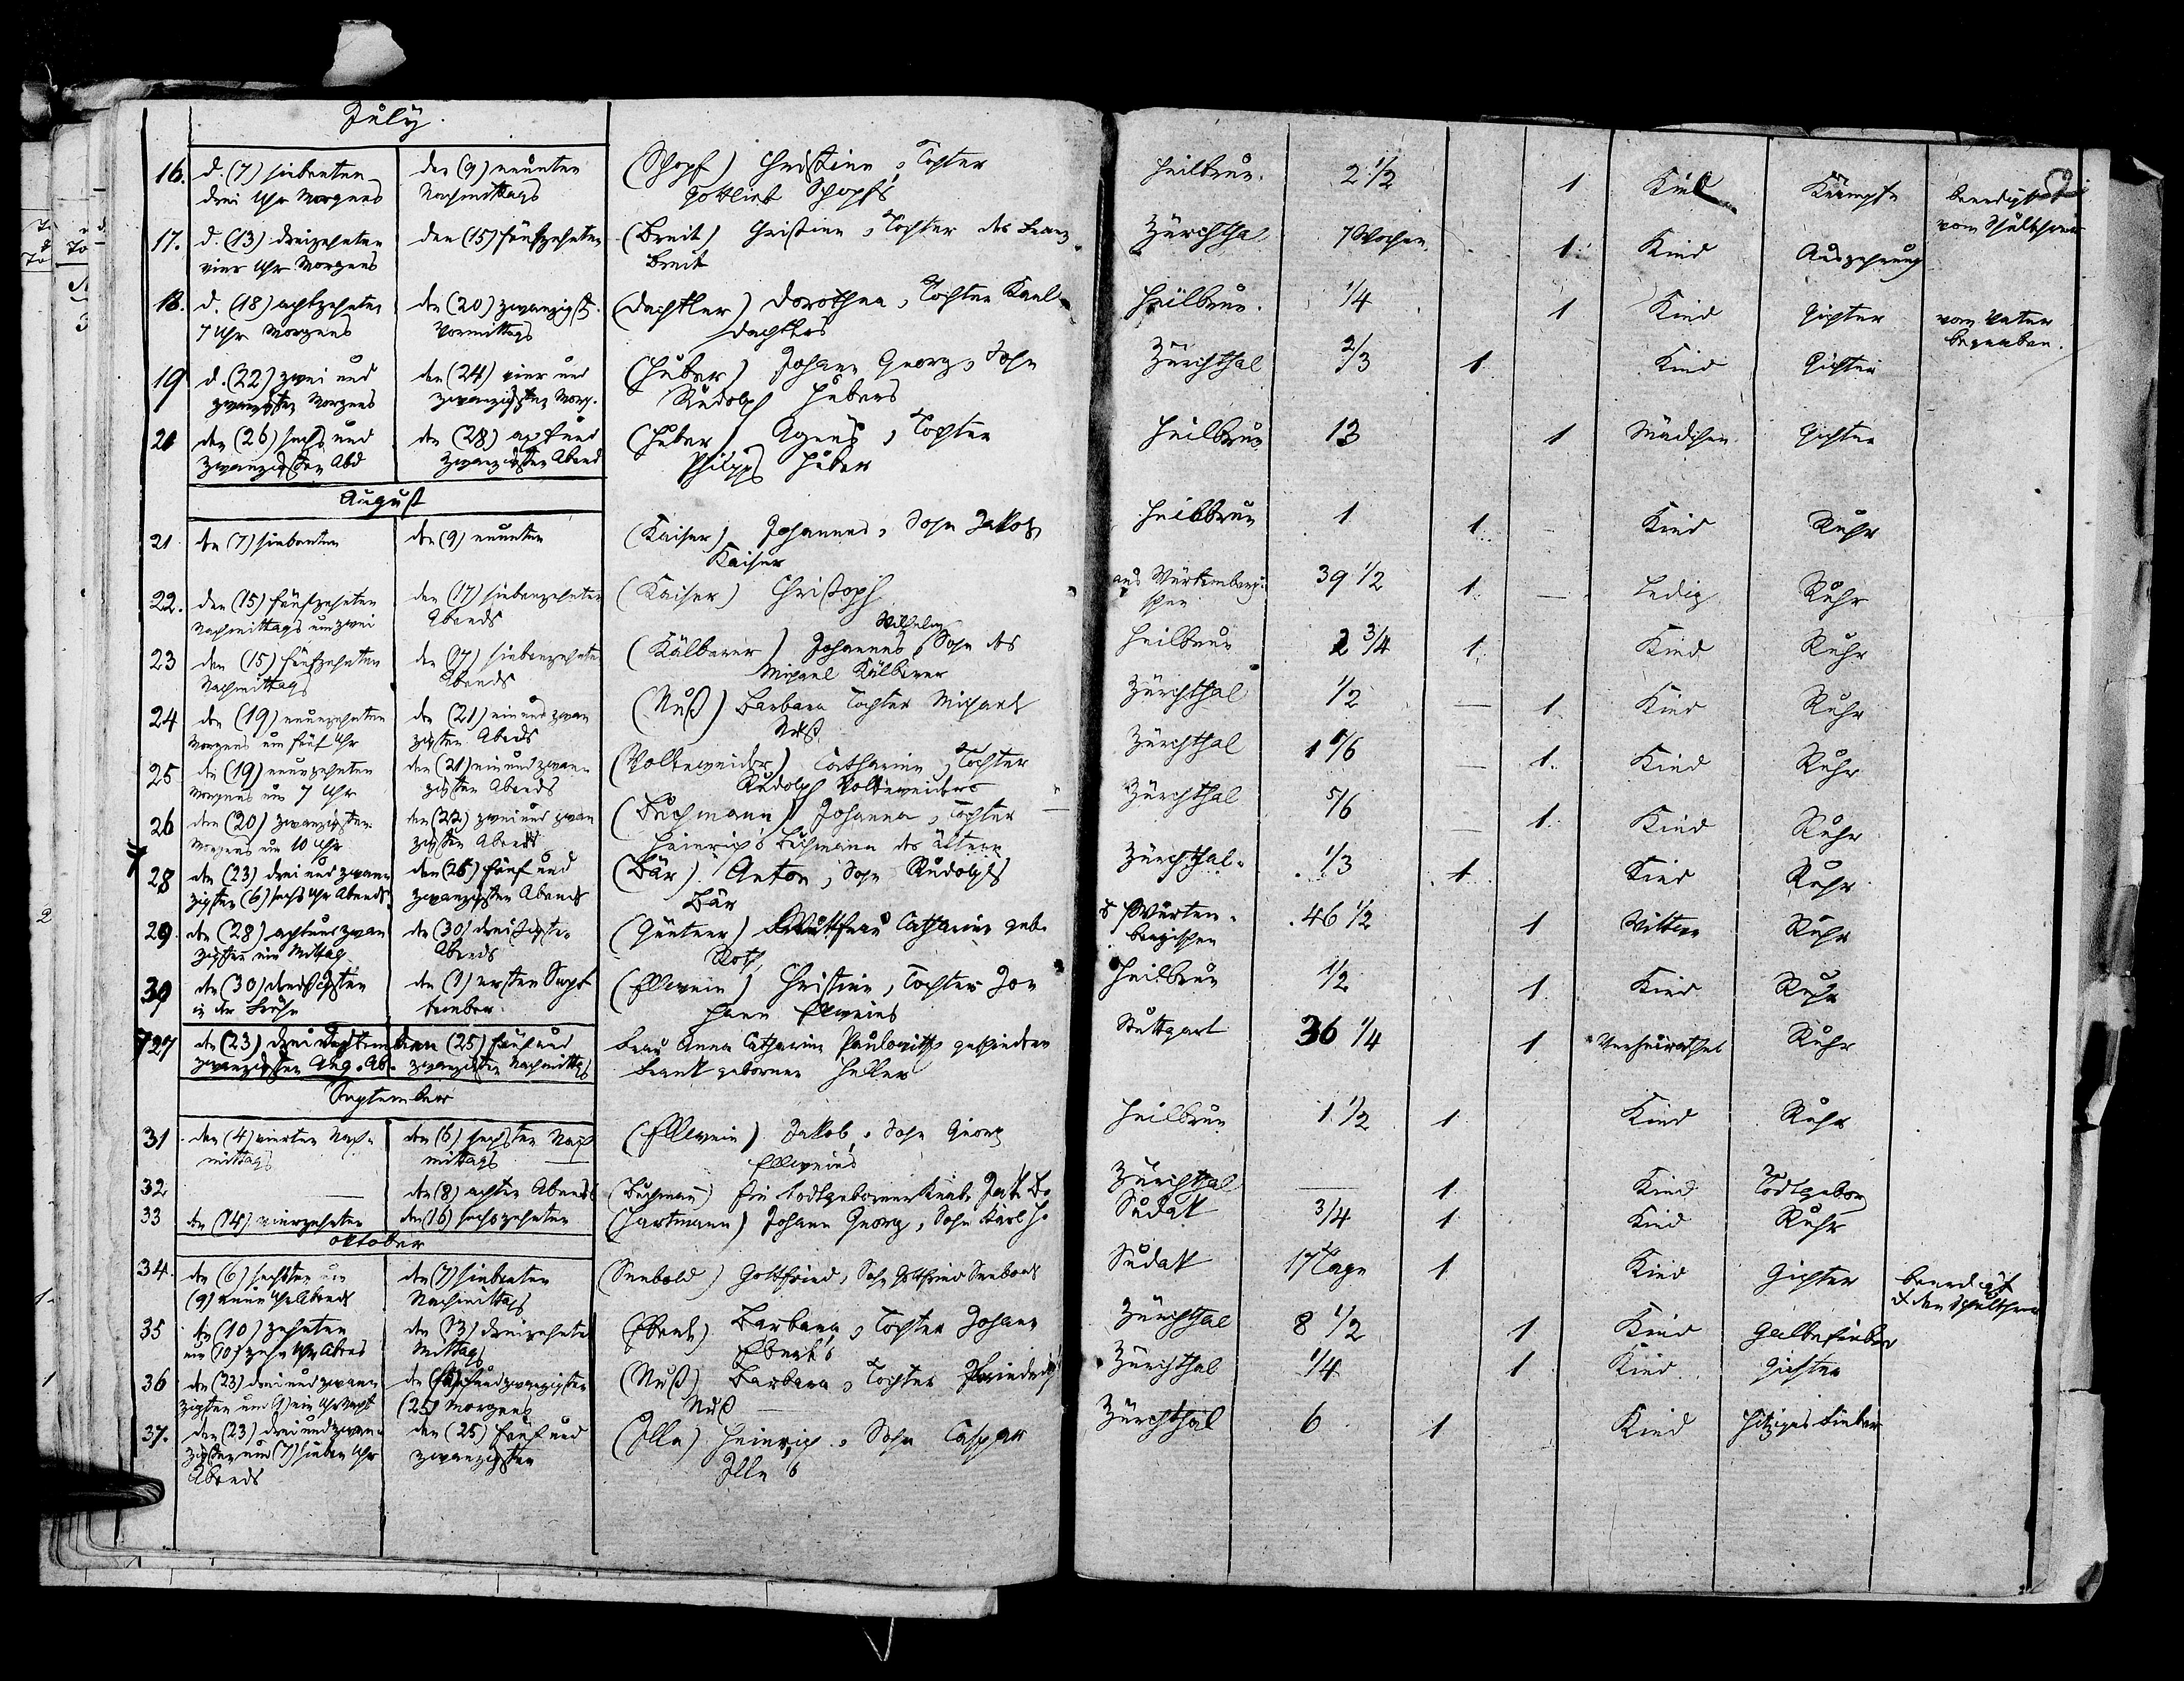 July.
16. d. (7) siebenten den (9) neunten (Schopf) Christine, Tochter Heilbrun. 2 1/2 1 Kind Krämpfe beerdigt
drei Uhr Morgens Nachmittags Gottlieb Schopfs vom Schultheis
17. d. (13) dreizehnten den (15) fünfzehnten (Breit) Christine, Tochter des Franz Zürchthal 7 Wochen 1. Kind Auszehrung
vier Uhr Morgens Breit
18. d. (18) achtzehnten den (20) zwanzigst. (Dachtler) Dorothea, Tochter Karl Heilbrun. 1/4 1 Kind Gichter vom Vater
7 Uhr Morgens Vormittags Dachtlers begraben.
19 d. (22) zwei und den (24) vier und (Huber) Johann Georg, Sohn Zürchthal 2/3 1 Kind Gichter
zwanzigsten Morgens zwanzigsten Morg. Rudolph Hubers
20 den (26) sechs und den (28) acht und (Huber) Agnes, Tochter Heilbrun 13 1 Mädchen Gichter
zwanzigsten Abd zwanzigsten Abend Philipps Huber
August
21 den (7) siebenten den (9) neunten (Kaiser) Johannes, Sohn Jakob Heilbrun 1 1 – Kind Ruhr
Kaiser
22. den (15) fünfzehnten den (17) siebenzehnten (Kaiser) Christoph aus Würtembergi- 39 1/2 1 – Ledig Ruhr
Nachmittags um zwei Abends schen
Wilhelm
23 den (15) fünfzehnten den (17) siebenzehnten (Kälberer) Johannes Sohn des Heilbrun 2 3/4 1 Kind Ruhr
Nachmittags Abends Michael Kälberer
24 den (19) neunzehnten den (21) ein und zwan (Nuß) Barbara Tochter Michael Zürchthal 1/2 – 1. Kind Ruhr
Morgens um fünf Uhr zigsten Abends Nuß
25 den (19) neunzehnten den (21) ein und zwan- (Volkeweider) Catharine, Tochter Zürchthal 1 1/6 – 1. Kind Ruhr
Morgens um 7 Uhr zigsten Abends Rudolph Volkeweiders
26 den (20) zwanzigsten den (22) zwei und zwan (Buchmann) Johanna, Tochter Zürchthal 5/6 – 1. Kind Ruhr
Morgens um 10 Uhr zigsten Abends Heinrich's Buchmann des ältern
28 den (23) drei und zwan- den (25) fünf und (Bär) Anton, Sohn Rudolphs Zürchthal. 1/3 1 Kind Ruhr
zigsten (6) sechs Uhr Abends zwanzigsten Abends Bär
29. den (28) acht und zwan den (30) dreißigsten (Güntner) Catharine geb. Würten- 46 1/2 1 Wittwe Ruhr
zigsten um Mittag Abends Roth bergischen
30 den (30) dreißigsten den (1) ersten Sept (Ellwein) Christine, Tochter Jo- Heilbrun 1/2 1 Kind Ruhr
in der Frühe tember hann Ellweins
27 den (23) drei und den (25) fünf und Frau Anna Catharine Paulowitsch geschiedene Stuttgart 36 1/4 1 Verheirathet Ruhr
zwanzigsten Aug. Ab. zwanzigsten Nachmittags Frank geborene Heller
September
31 den (4) vierten Nach- den (6) sechsten Nach (Ellwein) Jakob, Sohn Georg Heilbrun 1 1/2 1 Kind Ruhr
mittags mittags Ellweins
32 – den (8) achten Abends (Buchmann) Ein todtgeborner Knabe Jak. B. Zürchthal – 1 Kind Todtgebor
33 den (14) vierzehnten den (16) sechszehnten (Hartmann) Johann Georg, Sohn Karl H. Sudak 3/4 1 Kind Ruhr
Oktober
34. den (6) sechsten um den (7) siebenten (Seebold) Gottfried, Sohn Gottfried Seebolds Sudak 17 Tage 1 Kind Gichter beerdigt
(9) neun Uhr Abends Nachmittags d. den Schultheis
35 den (10) zehnten den (13) dreizehnten (Eberh) Barbara, Tochter Johann Zürchthal 8 1/2 1 Kind Gallefieber
um (10) zehn Uhr Abends Mittag
36 den (23) drei und zwan- den fünf und zwanzigsten (Nuß) Barbara, Tochter Friedrich Zürchthal 1/4 1 Kind Gichter
zigsten um ein Uhr Nachts (25) Morgens Nuß
37. den (23) drei und zwan- den (25) fünf und (Ille) Heinrich, Sohn Caspar Zürchthal 6 1 Kind Hitziges Fieber
zigsten um (7) sieben Uhr zwanzigsten Ille's
Abends